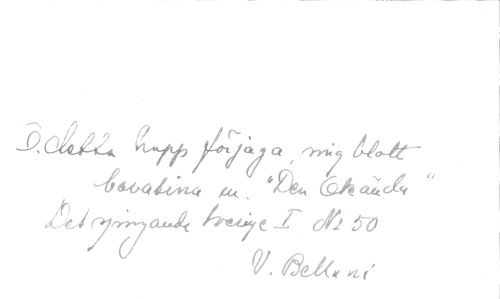 O. detta hopp förjaga, mig blott
Cavatina ur. "Den Okända"
Det sjungande Sverige I No 50
V. Bellini